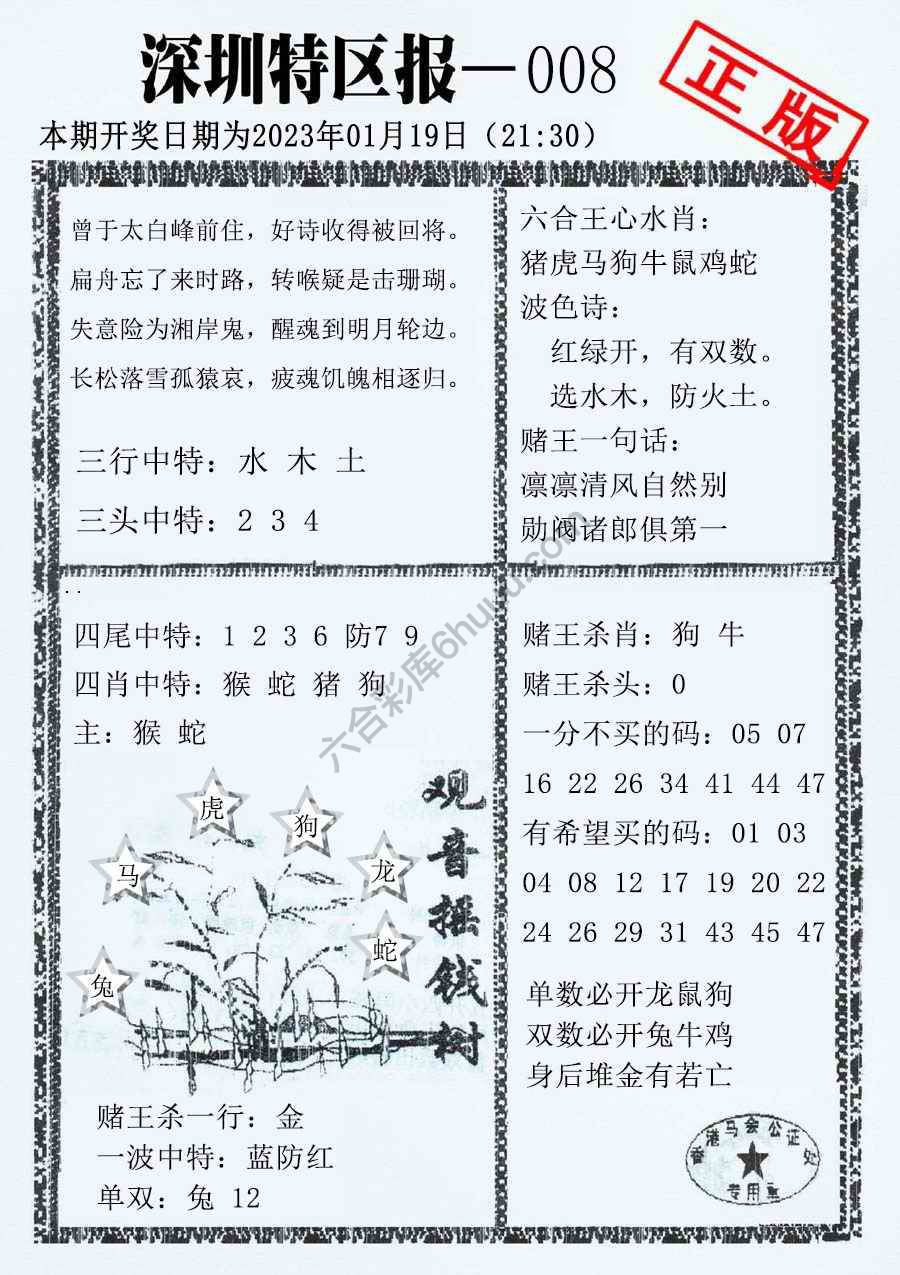 深圳特区报—008
正版
本期开奖日期为2023年01月19日（21:30）
曾于太白峰前住，好诗收得被回将。
扁舟忘了来时路，转喉疑是击珊瑚。
失意险为湘岸鬼，醒魂到明月轮边。
长松落雪孤猿哀，疲魂饥魄相逐归。
三行中特：水 木 土
三头中特：2 3 4
六合王心水肖：
猪虎马狗牛鼠鸡蛇
波色诗：
红绿开，有双数。
选水木，防火土。
赌王一句话：
凛凛清风自然别
勋阀诸郎俱第一
四尾中特：1 2 3 6 防7 9
四肖中特：猴 蛇 猪 狗
主：猴 蛇
观音摇钱树
虎
狗
马
龙
蛇
兔
赌王杀一行：金
一波中特：蓝防红
单双：兔 12
赌王杀肖：狗 牛
赌王杀头：0
一分不买的码：05 07
16 22 26 34 41 44 47
有希望买的码：01 03
04 08 12 17 19 20 22
24 26 29 31 43 45 47
单数必开龙鼠狗
双数必开兔牛鸡
身后堆金有若亡
香港马会公证处
专用章
六合彩库6huku.com